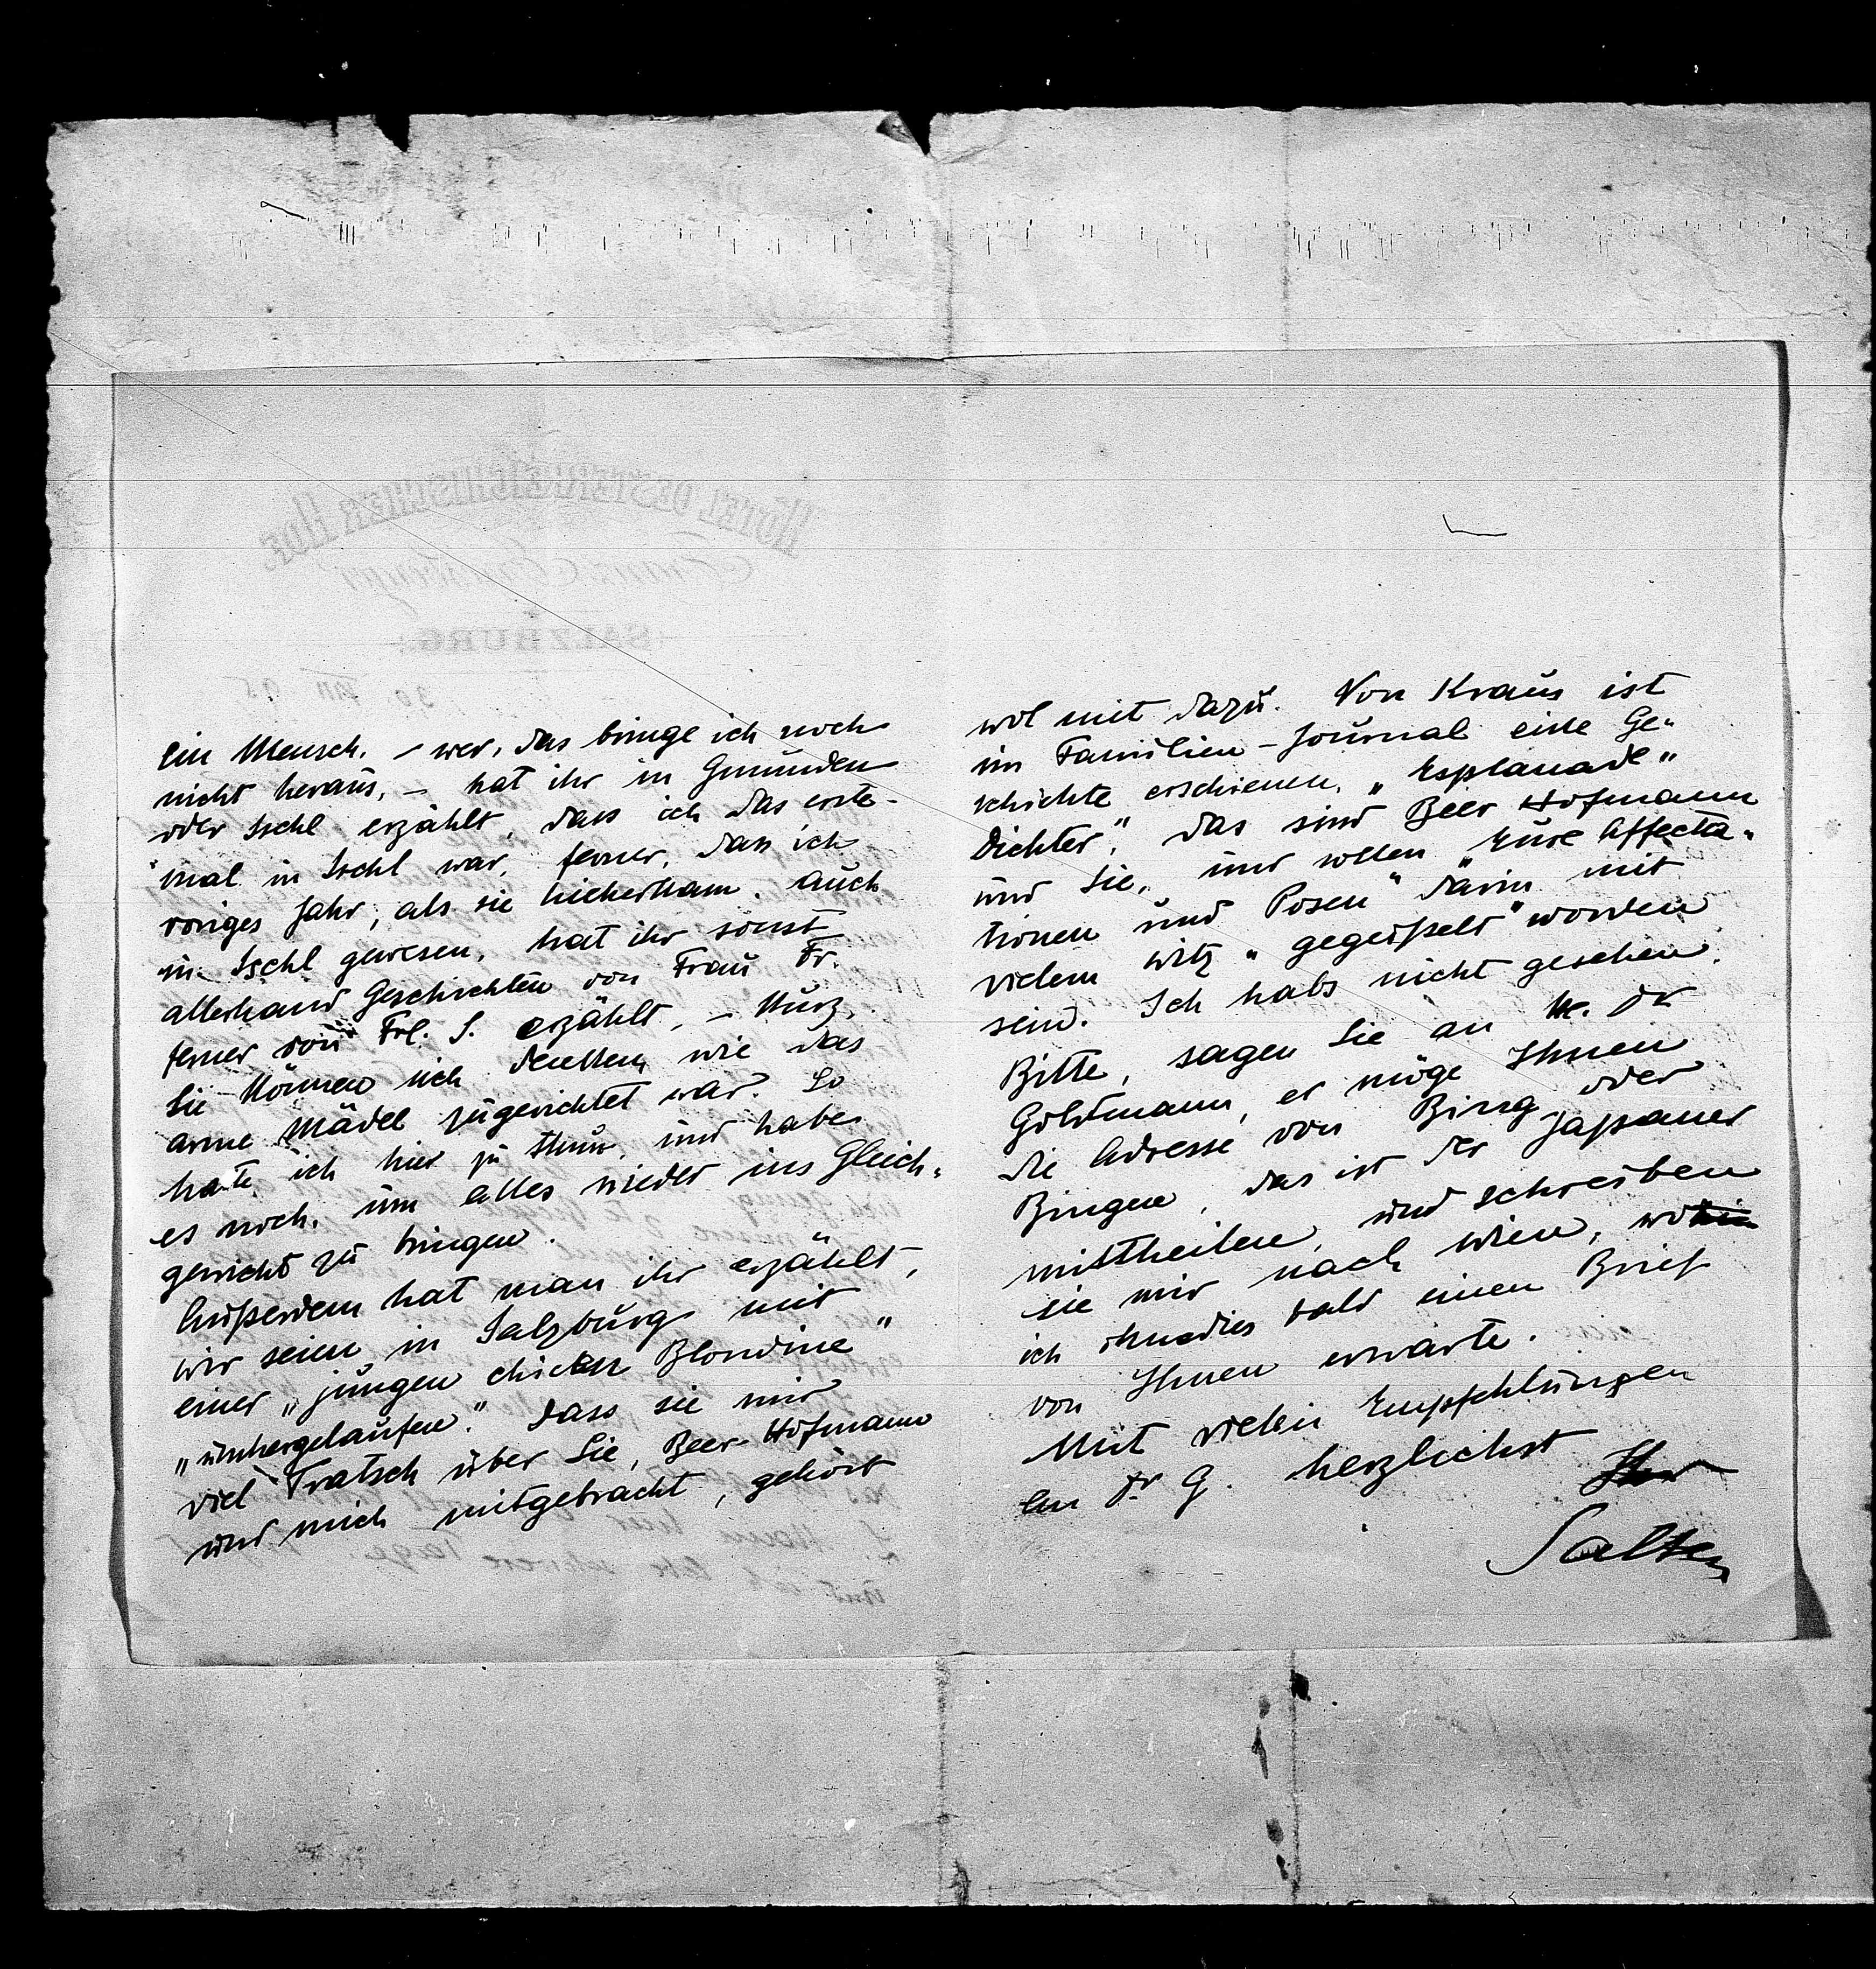 ein Mensch, – wer, das bringe ich noch
nicht heraus, – hat ihr in Gmunden
oder Ischl erzählt, dass ich das erste-
mal in Ischl war, ferner, dass ich
voriges Jahr, als sie hieherkam, auch
in Ischl gewesen, hat ihr sonst
allerhand Geschichten von Frau Fr.
ferner von Frl. S. erzählt, – Kurz,
Sie können sich denken, wie das
arme Mädel zugerichtet war. So
hatte ich hier zu thun, und habe
es noch, um alles wieder ins Gleich-
gewicht zu bringen.
Außerdem hat man ihr erzählt,
wir seien in Salzburg mit
einer „jungen chicen Blondine"
„umhergelaufen." Dass sie mir
viel Tratsch über Sie, Beer-Hofmann
und mich mitgebracht, gehört
wol mit dazu. Von Kraus ist
im Familien-Journal eine Ge-
schichte erschienen, „Esplanade-
Dichter", das sind Beer Hofmann
und Sie, und sollen „Eure Affecta-
tionen und Posen" darin mit
vielem Witz „gegeißelt" worden
sein. Ich habs nicht gesehen.
Bitte, sagen Sie an Dr
Goldmann, er möge Ihnen
die Adresse von Bing oder
Bingen, das ist der Japaner
mittheilen, und schreiben
sie mir nach Wien, wo
ich ohnedies bald einen Brief
von Ihnen erwarte.
Mit vielen Empfehlungen
an Dr G. herzlichst Ihr
Salten
HOTEL OESTERREICHISCHER HOF
SALZBURG